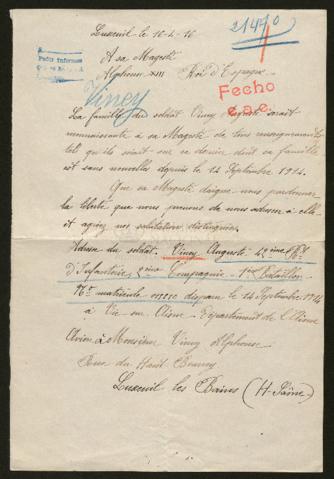 Luxeuil le 16-4-16
21470
A sa Majesté
Alphonse XIII Roi d'Espagne
Pedir Informes
Viney
Fecho
e.a.e.
La famille du soldat Viney Auguste serait
reconnaissante à sa Majesté de tous renseignements
tel qu'ils soient sur ce dernier dont sa famille
est sans nouvelles depuis le 14 Septembre 1914.
Que sa Majesté daigne nous pardonner
la liberté que nous prenons de nous adresser à elle
et agréez nos salutations distinguées.
Adresse du soldat. Viney Auguste 42ème
d'Infanterie, 2ème Compagnie 1er Bataillon
No matricule disparu le 14 Septembre 1914
à Vic sur Aisne Département de l'Aisne
à Monsieur Viney Alphonse
Rue du Haut
Luxeuil les Bains (Hte Saône)